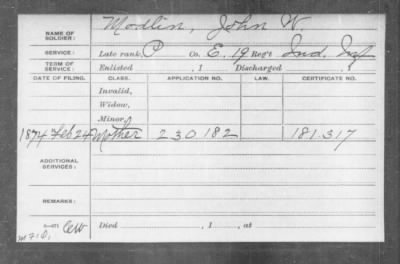 NAME OF SOLDIER: Modlin, John W.
SERVICE: Late rank, P Co. E, 19 Reg't Ind. Inf
TERM OF SERVICE: Enlisted , 1 Discharged , 1
DATE OF FILING. CLASS. APPLICATION NO. LAW. CERTIFICATE NO.
Invalid,
Widow,
Minor,
1874 Feb 24 Mother 230182 181.317
ADDITIONAL SERVICES:
REMARKS:
Died , 1 , at